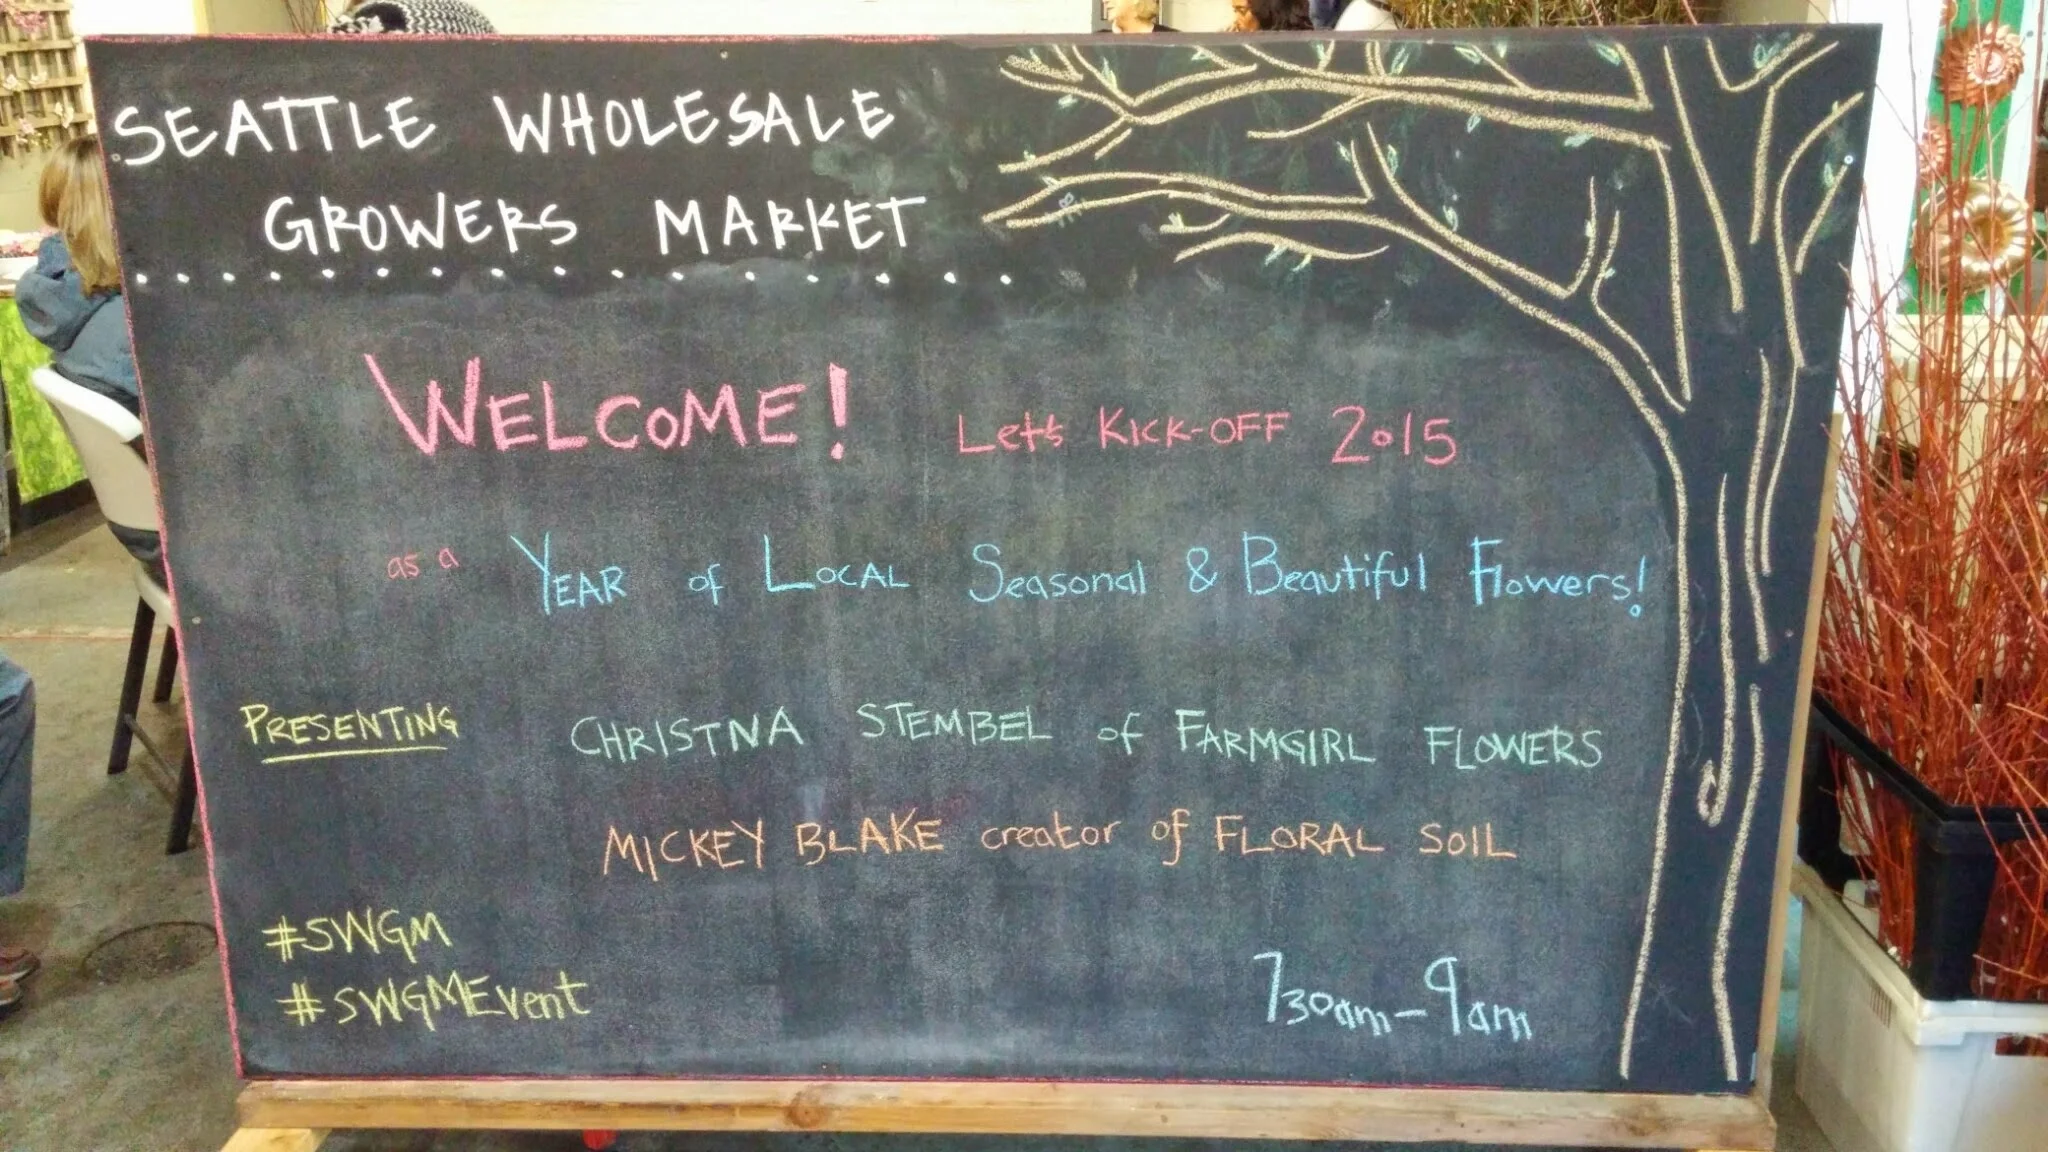 SEATTLE WHOLESALE
GROWERS MARKET
WELCOME! Let's KICK-OFF 2015
as a YEAR of LOCAL Seasonal & Beautiful Flowers!
PRESENTING CHRISTNA STEMBEL of FARMGIRL FLOWERS
MICKEY BLAKE creator of FLORAL SOIL
#SWGM
#SWGMEvent
730am-9am